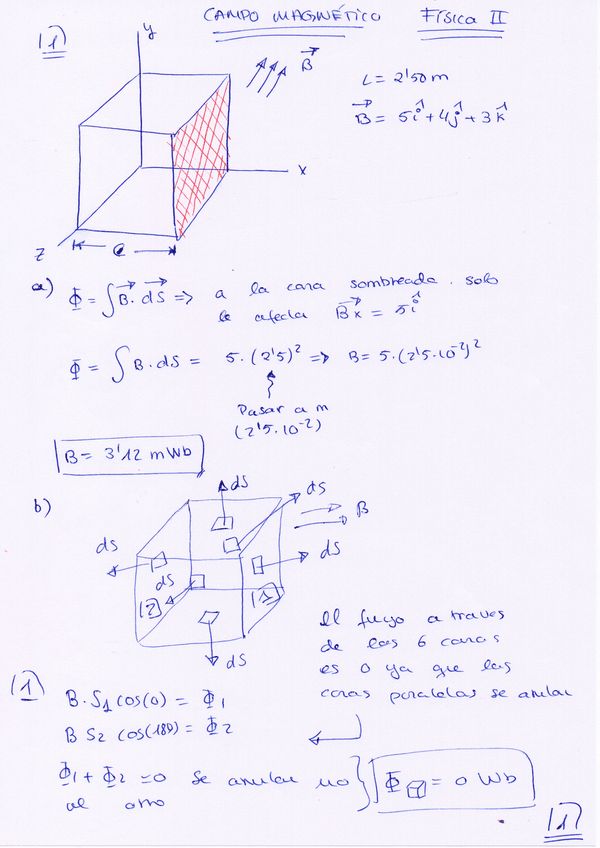 CAMPO MAGNÉTICO FÍSICA II
1
y
B
L = 2'50 m
B = 5î + 4ĵ + 3k̂
x
z
a) Φ = ∫B · dS => a la cara sombreada solo
le afecta Bx = 5î
Φ = ∫ B · dS = 5 · (2'5)² => B = 5 · (2'5 · 10⁻²)²
Pasar a m
(2'5 · 10⁻²)
B = 3'12 mWb
b)
dS
dS
B
dS
dS
dS
2
1
dS
El flujo a traves
de las 6 caras
es 0 ya que las
caras paralelas se anulan
1
B · S1 cos(0) = Φ1
B S2 cos(180) = Φ2
Φ1 + Φ2 = 0 se anulan uno
al otro
Φ = 0 Wb
1